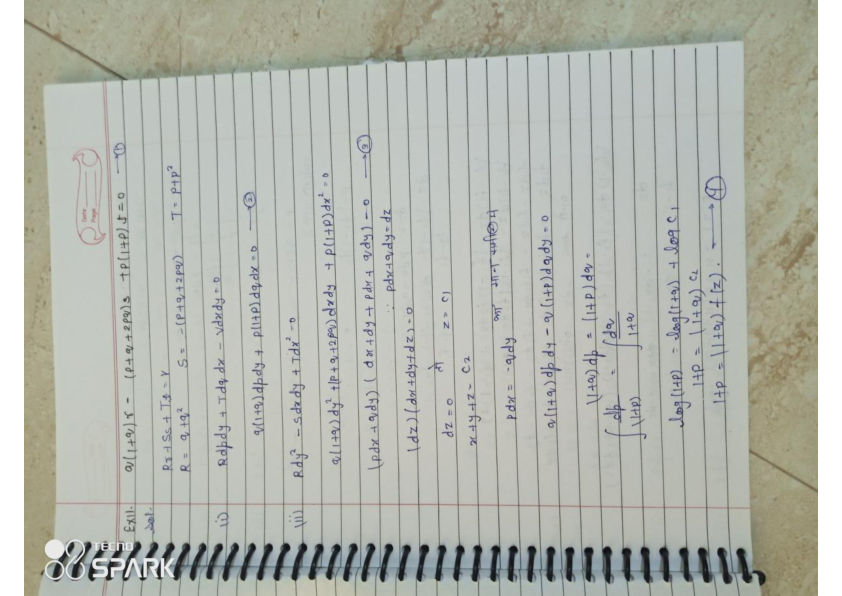 Date
Page
Ex11. q(1+q)r - (p+q+2pq)s + p(1+p)r=0 → ①
Sol.
Rr+Ss+Tt=V
R = q+q² S = -(p+q+2pq) T = p+p²
(i) Rdpdy + Tdqdx - Vdxdy=0
q(1+q)dpdy + p(1+p)dqdx=0 → ②
(ii) Rdy² - Sdxdy + Tdx²=0
q(1+q)dy²+(p+q+2pq)dxdy + p(1+p)dx²=0
(pdx+qdy)(dx+dy+pdx+qdy)=0 → ③
(dz)(dx+dy+dz)=0 ∵ pdx+qdy=dz
dz=0 से z=c₁
x+y+z=c₂
pdx = -qdy का मान समी② में
q(1+q)dpdy-q(1+p)dqdy=0
(1+q)dp = (1+p)dq =
∫dp/(1+p) = ∫dq/1+q
log(1+p) = log(1+q) + log c₁
1+p = (1+q)c₂
1+p = (1+q)f(z). → ④
TECNO
SPARK